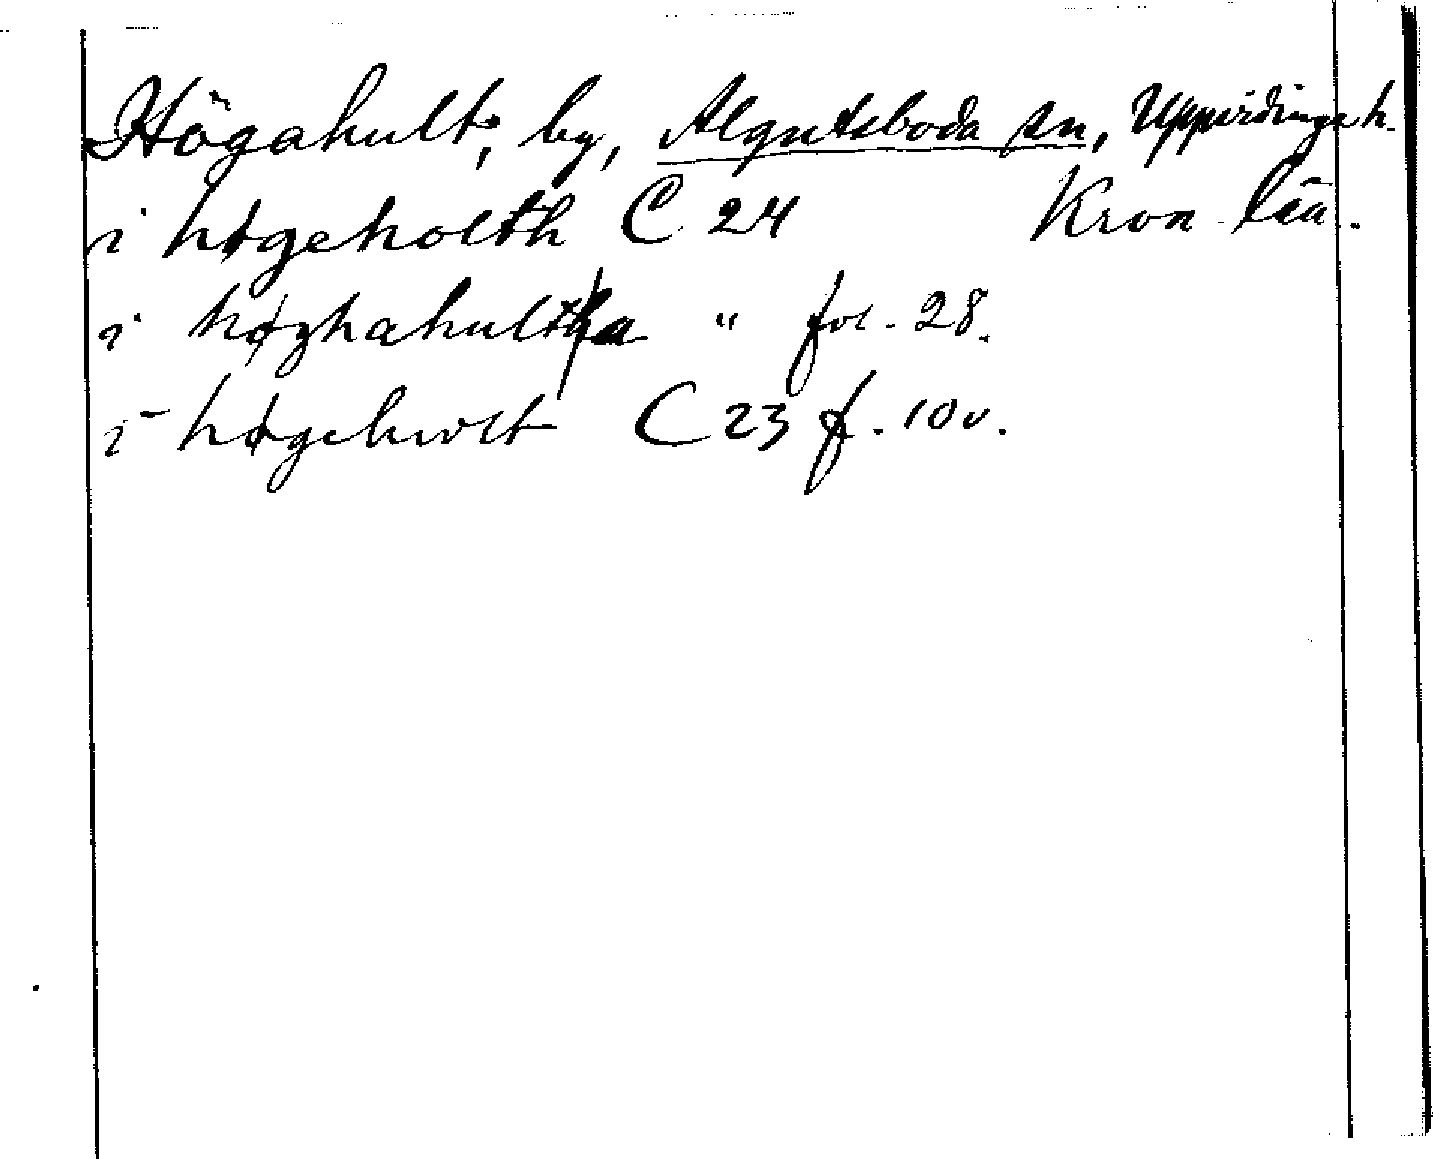 Högahult, by, Algutsboda sn, Uppvidinge h.
i høgeholth C 24 Kron. län.
i høghahultha " fol. 28.
i høgehwlt C 23 f. 10v.